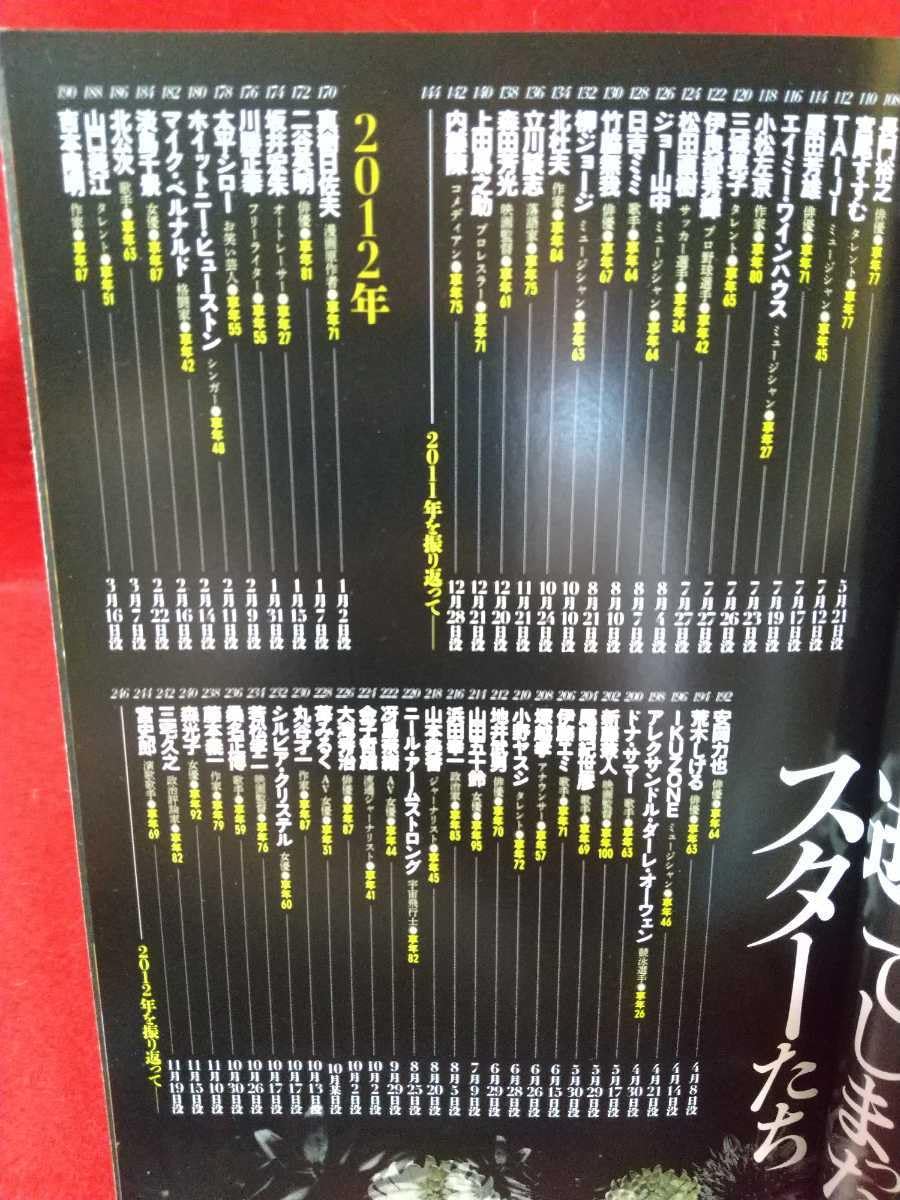 てしまった
スターたち
108 長門裕之 俳優●享年77 5月21日没
110 宮尾すすむ タレント●享年77 7月12日没
112 TAIJI ミュージシャン●享年45 7月17日没
114 原田芳雄 俳優●享年71 7月19日没
116 エイミー・ワインハウス ミュージシャン●享年27 7月23日没
118 小松左京 作家●享年80 7月26日没
120 タレント●享年65 7月27日没
122 伊良部秀輝 プロ野球選手●享年42 7月27日没
124 松田直樹 サッカー選手●享年34 8月4日没
126 ジョー山中 ミュージシャン●享年64 8月7日没
128 日吉ミミ 歌手●享年64 8月10日没
130 竹脇無我 俳優●享年67 8月21日没
132 柳ジョージ ミュージシャン●享年63 10月10日没
134 北杜夫 作家●享年84 10月24日没
136 立川談志 落語家●享年75 11月21日没
138 森田芳光 映画監督●享年61 12月20日没
140 上田馬之助 プロレスラー●享年71 12月21日没
142 内藤陳 コメディアン●享年75 12月28日没
144 2011年を振り返って
2012年
170 真樹日佐夫 漫画原作者●享年71 1月2日没
172 二谷英明 俳優●享年81 1月7日没
174 坂井宏朱 オートレーサー●享年27 1月15日没
176 川勝正幸 フリーライター●享年55 1月31日没
178 大平シロー お笑い芸人●享年55 2月9日没
180 ホイットニー・ヒューストン シンガー●享年48 2月11日没
182 マイク・ベルナルド 格闘家●享年42 2月14日没
184 淡島千景 女優●享年87 2月16日没
186 北公次 歌手●享年63 2月22日没
188 山口美江 タレント●享年51 3月7日没
190 吉本隆明 作家●享年87 3月16日没
192 安岡力也 俳優●享年64 4月8日没
194 荒木しげる 俳優●享年63 4月14日没
196 IKUZONE ミュージシャン●享年46 4月21日没
198 アレクサンドル・ダーレ・オーウェン 競泳選手●享年26 4月30日没
200 ドナ・サマー 歌手●享年63 5月17日没
202 新藤兼人 映画監督●享年100 5月29日没
204 尾崎紀世彦 歌手●享年69 5月30日没
206 伊藤エミ 歌手●享年71 6月15日没
208 塚越孝 アナウンサー●享年57 6月26日没
210 小野ヤスシ タレント●享年72 6月28日没
212 地井武男 俳優●享年70 6月29日没
214 山田五十鈴 女優●享年95 7月9日没
216 浜田幸一 政治家●享年83 8月5日没
218 山本美香 ジャーナリスト●享年45 8月20日没
220 ニール・アームストロング 宇宙飛行士●享年82 8月25日没
222 冴島奈緒 AV女優●享年44 9月29日没
224 金子哲雄 流通ジャーナリスト●享年41 10月2日没
226 大滝秀治 俳優●享年87 10月2日没
228 夢みるく AV女優●享年31 10月某日没
230 丸谷才一 作家●享年87 10月13日没
232 シルビア・クリステル 女優●享年60 10月17日没
234 若松孝二 映画監督●享年76 10月17日没
236 桑名正博 歌手●享年59 10月26日没
238 藤本義一 作家●享年79 10月30日没
240 森光子 女優●享年92 11月10日没
242 三宅久之 政治評論家●享年82 11月15日没
244 宮史郎 演歌歌手●享年69 11月19日没
246 2012年を振り返って